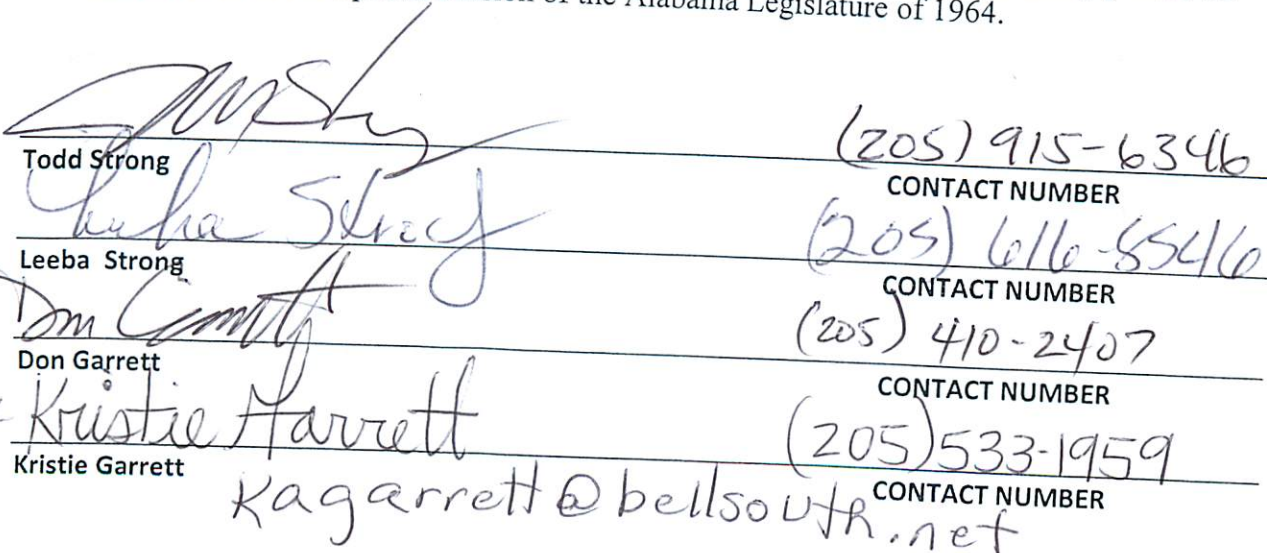 of the Alabama Legislature of 1964.
(205) 915-6346
Todd Strong
CONTACT NUMBER
Leeba Strong
(205) 616-8546
Leeba Strong
CONTACT NUMBER
Don Garrett
(205) 410-2407
Don Garrett
CONTACT NUMBER
Kristie Garrett
(205) 533-1959
Kristie Garrett
CONTACT NUMBER
Kagarrett@bellsouth.net